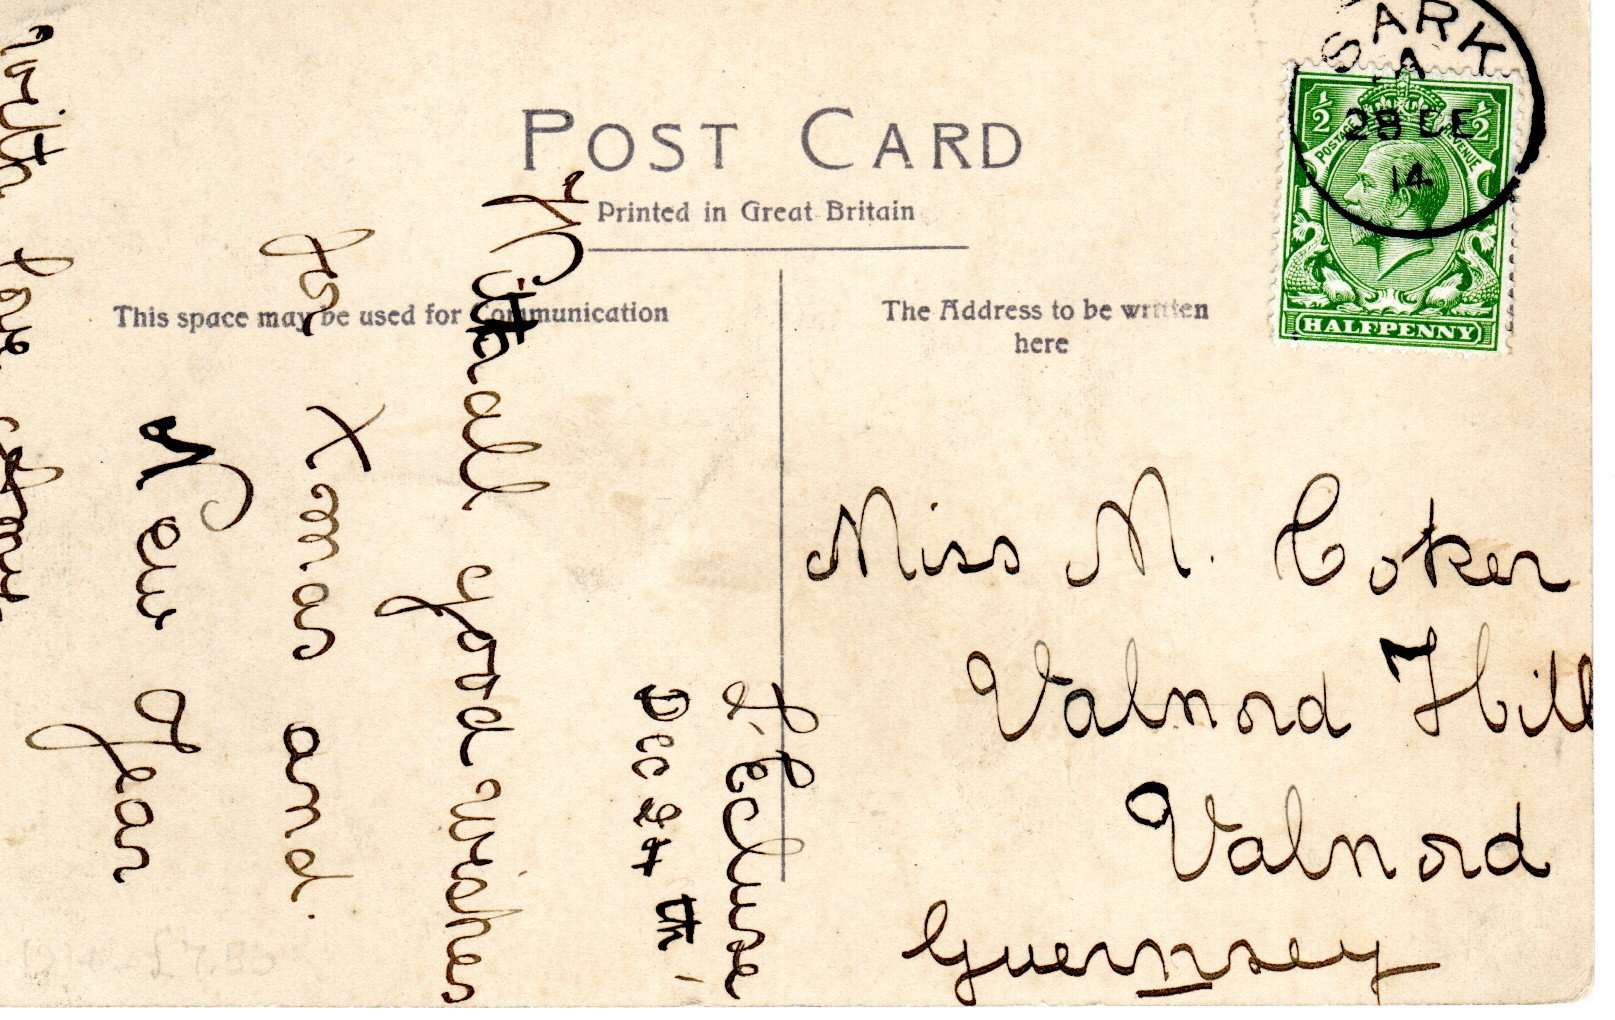 POST CARD
Printed in Great Britain
This space may be used for Communication
The Address to be written
here
SARK
A
28 DE
14
½ ½
POSTAGE REVENUE
HALFPENNY
L'Ecluse
Dec 24th
With all good wishes
for Xmas and
New Year
with love
Miss M. Coker
Valnord Hill
Valnord
Guernsey